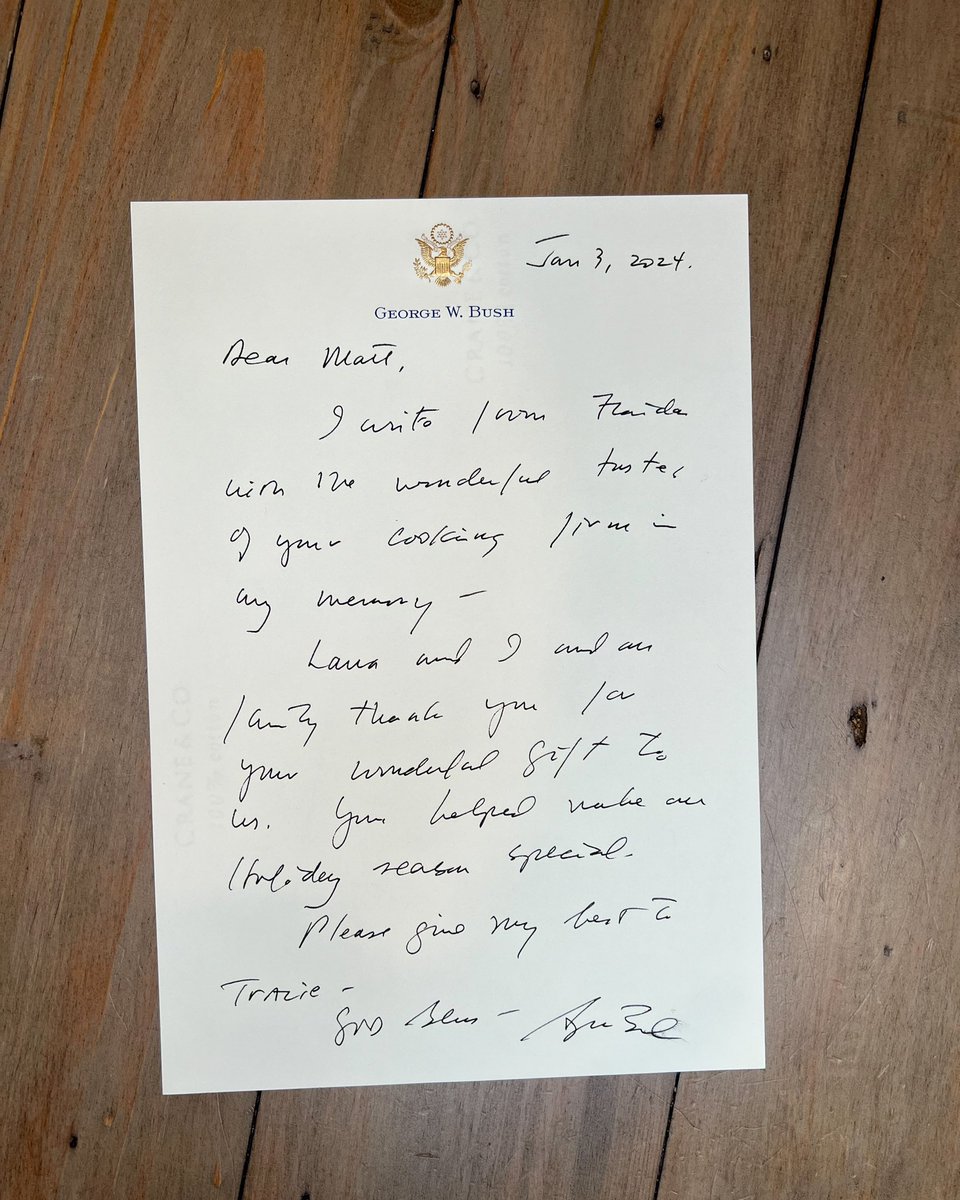 Jan 3, 2024.
GEORGE W. BUSH
Dear Matt,
I write from Florida
with the wonderful tastes
of your cooking firm in
my memory -
Laura and I and our
family thank you for
your wonderful gift to
us. You helped make our
Holiday season special.
Please give my best to
Tracie -
God Bless -
CRANE & CO